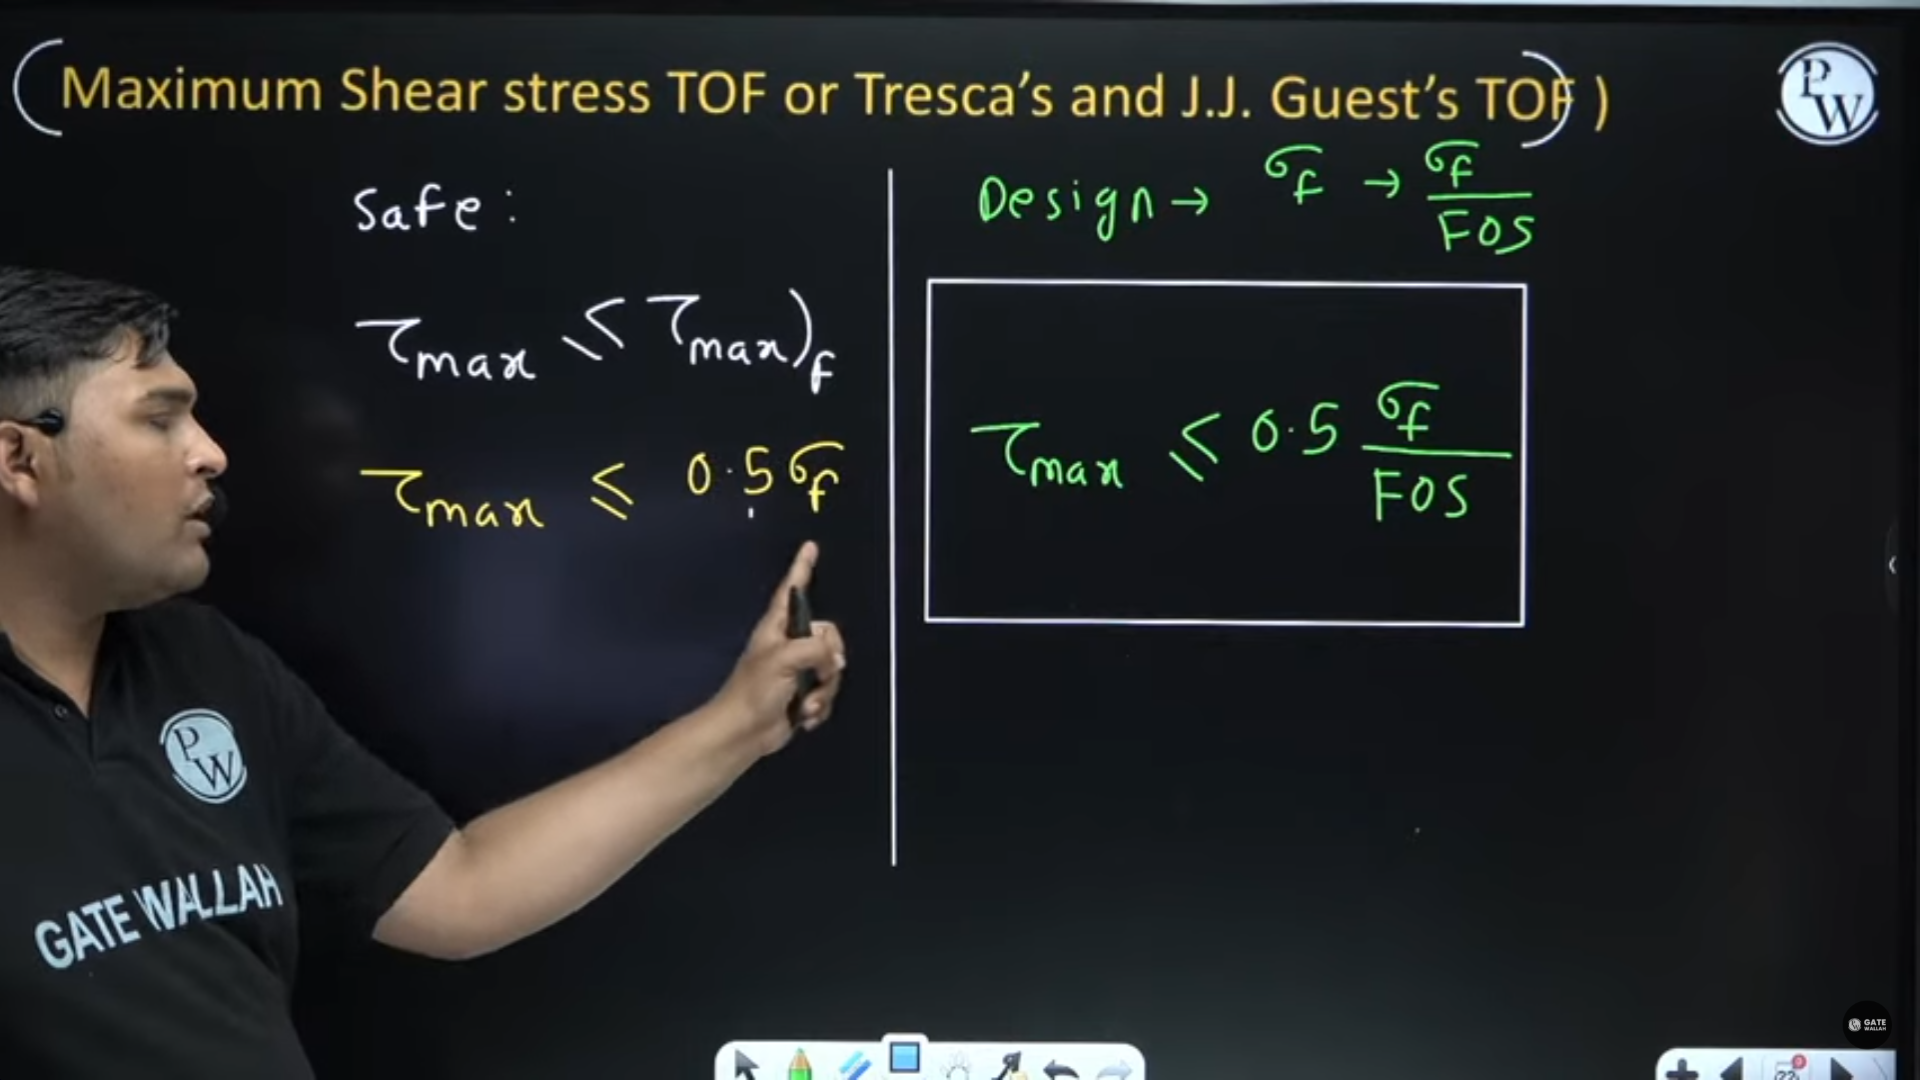 (Maximum Shear stress TOF or Tresca's and J.J. Guest's TOF)
PW
Safe:
τmax ≤ τmax)f
τmax ≤ 0.5 σf
Design → σf → σf/FOS
τmax ≤ 0.5 σf/FOS
PW
GATE WALLAH
GATE
WALLAH